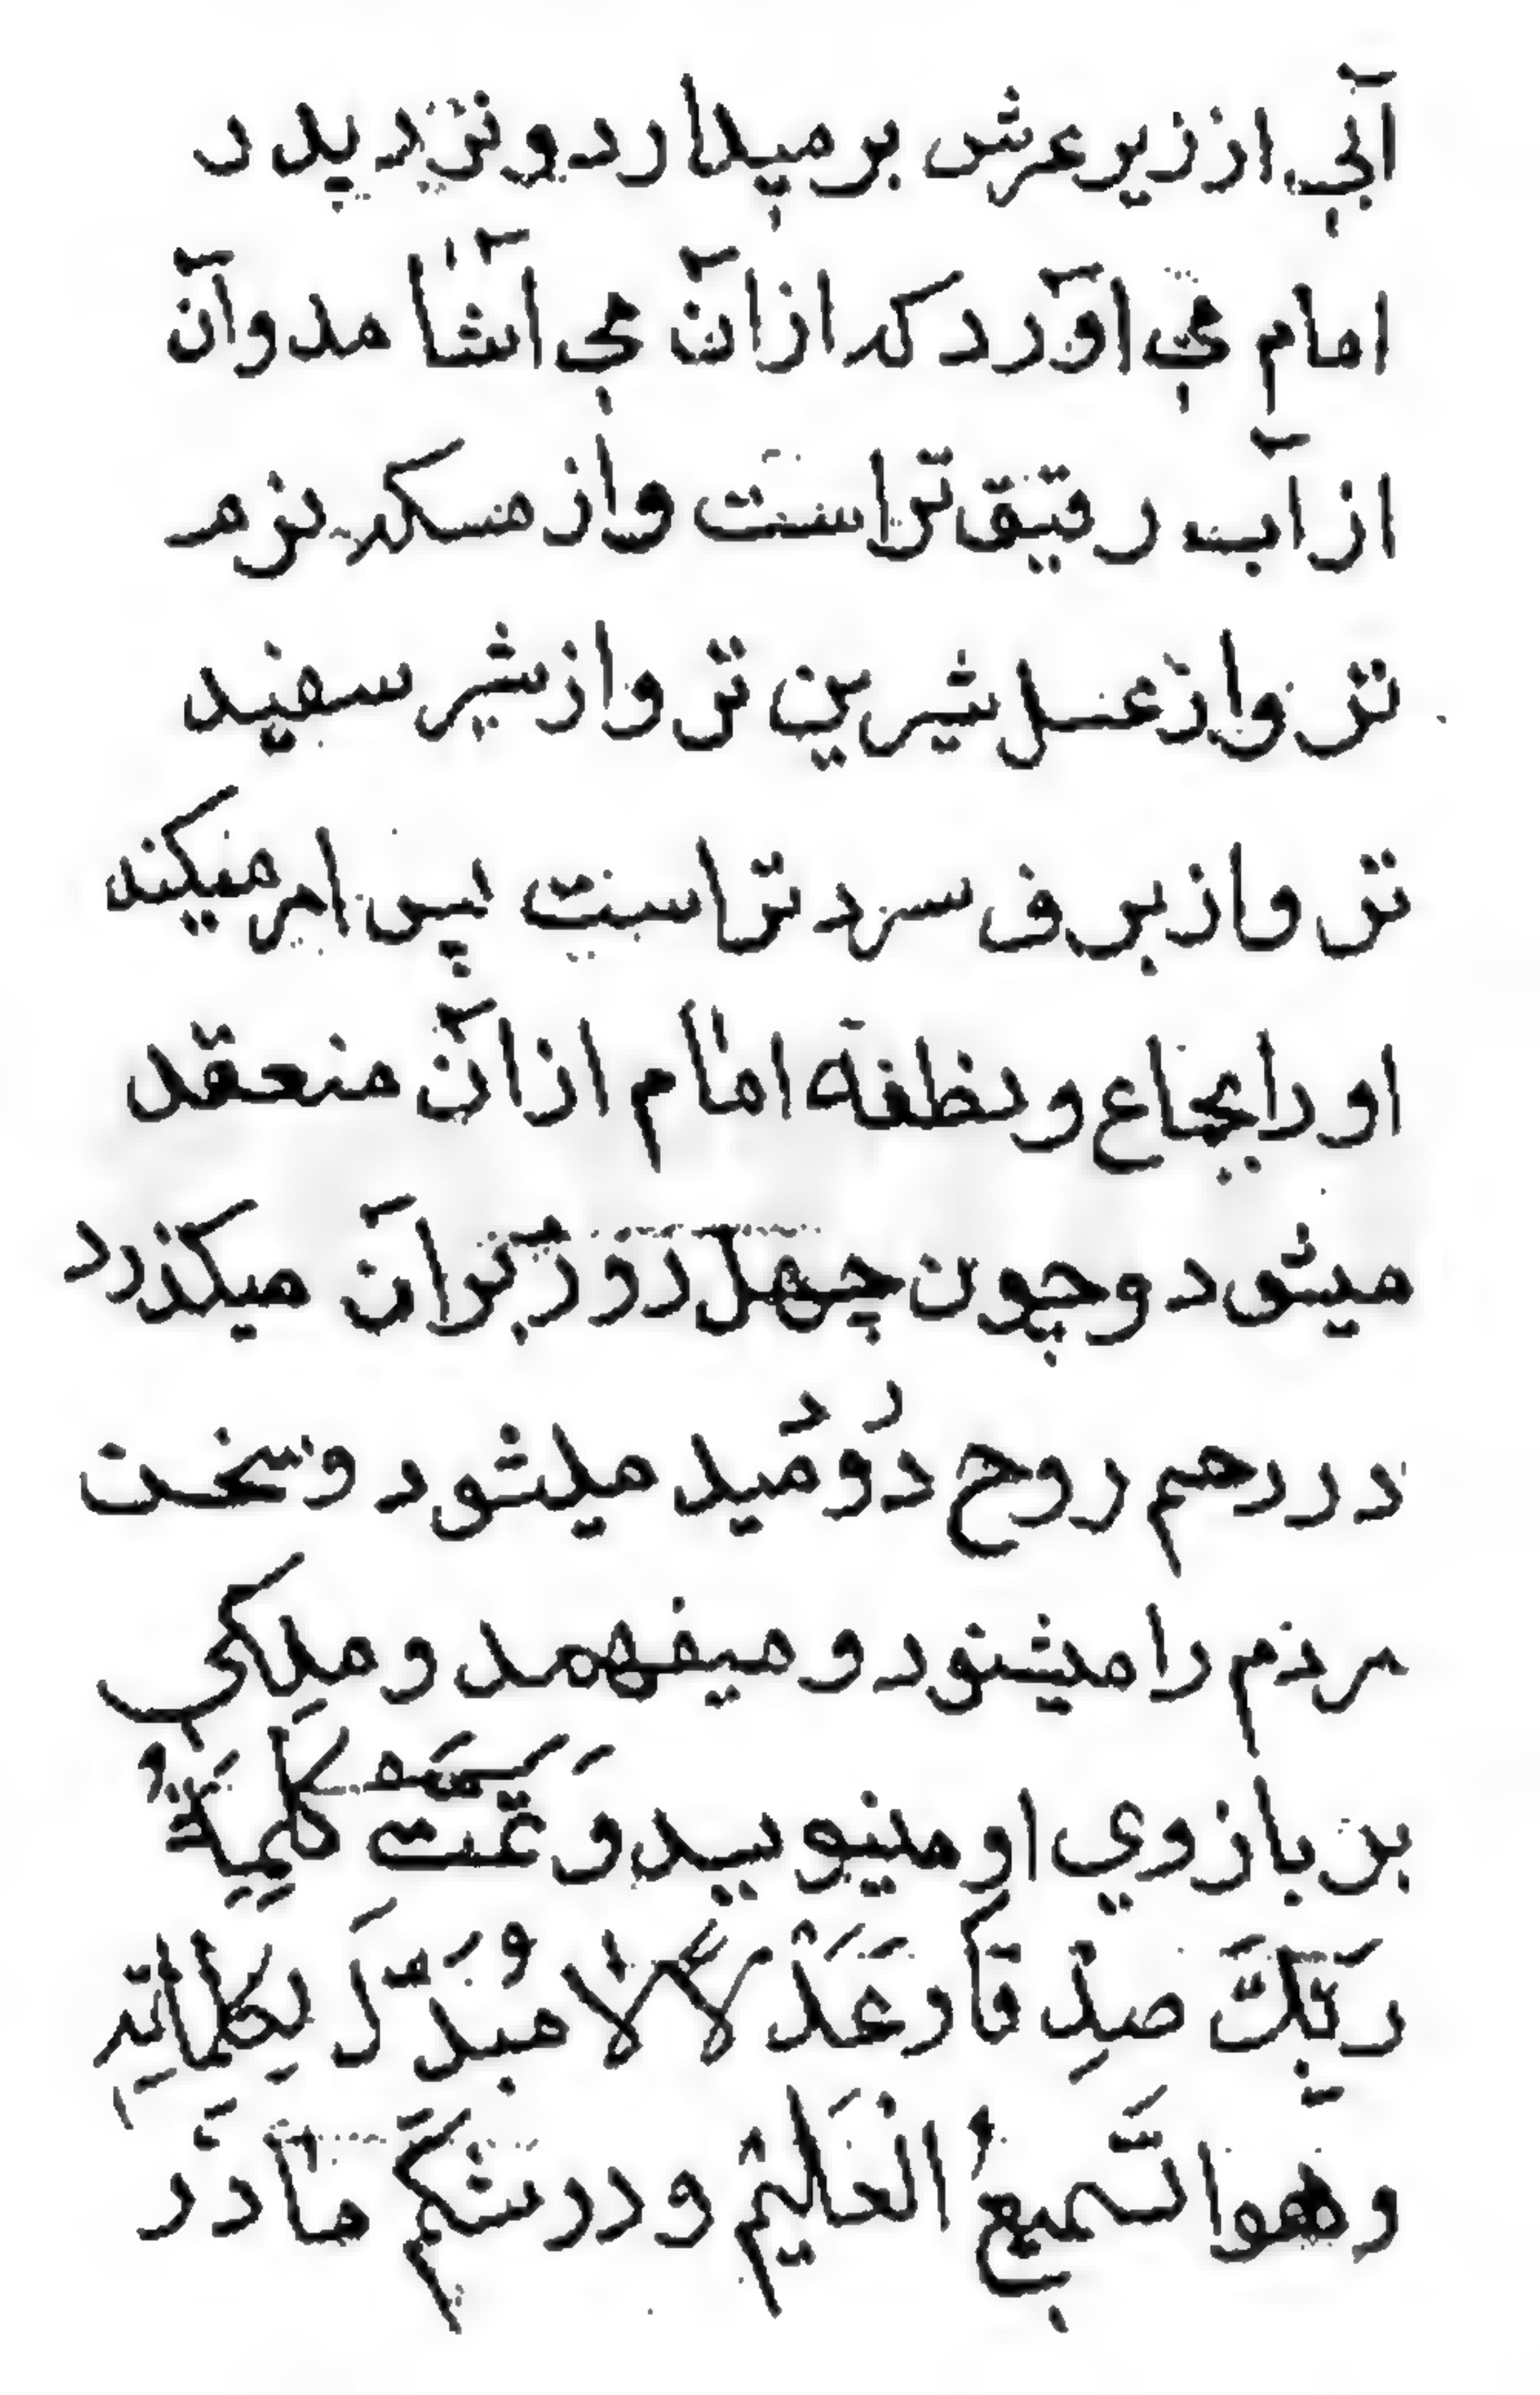 آبی از زیر عرش بر میدارد و نزد پدر
امام می آورد که از آن می آشامد و آن
از آب رقیق تر است و از مسکه نرم
تر و از عسل شیرین تر و از شیر سفید
تر و از برف سرد تر است پس امر میکند
او را بجماع و نطفه امام از آن منعقد
میشود و چون چهل روز بر آن میکذرد
در رحم روح در او دمیده میشود و سخن
مردم را میشنود و میفهمد و ملکی
بر بازوی او مینویسد وَ تَمَّتْ كَلِمَةُ
رَبِّكَ صِدْقًا وَ عَدْلًا لا مُبَدِّلَ لِكَلِماتِهِ
و هو السَّمیعُ الْعَلیمُ و در شکم مادر